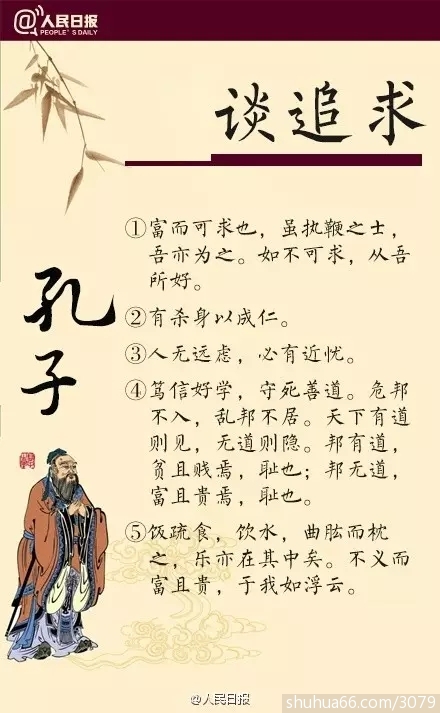 @人民日报
PEOPLE'S DAILY
谈追求
①富而可求也，虽执鞭之士，
吾亦为之。如不可求，从吾
所好。
②有杀身以成仁。
③人无远虑，必有近忧。
④笃信好学，守死善道。危邦
不入，乱邦不居。天下有道
则见，无道则隐。邦有道，
贫且贱焉，耻也；邦无道，
富且贵焉，耻也。
⑤饭疏食，饮水，曲肱而枕
之，乐亦在其中矣。不义而
富且贵，于我如浮云。
孔子
@人民日报
shuhua66.com/3079